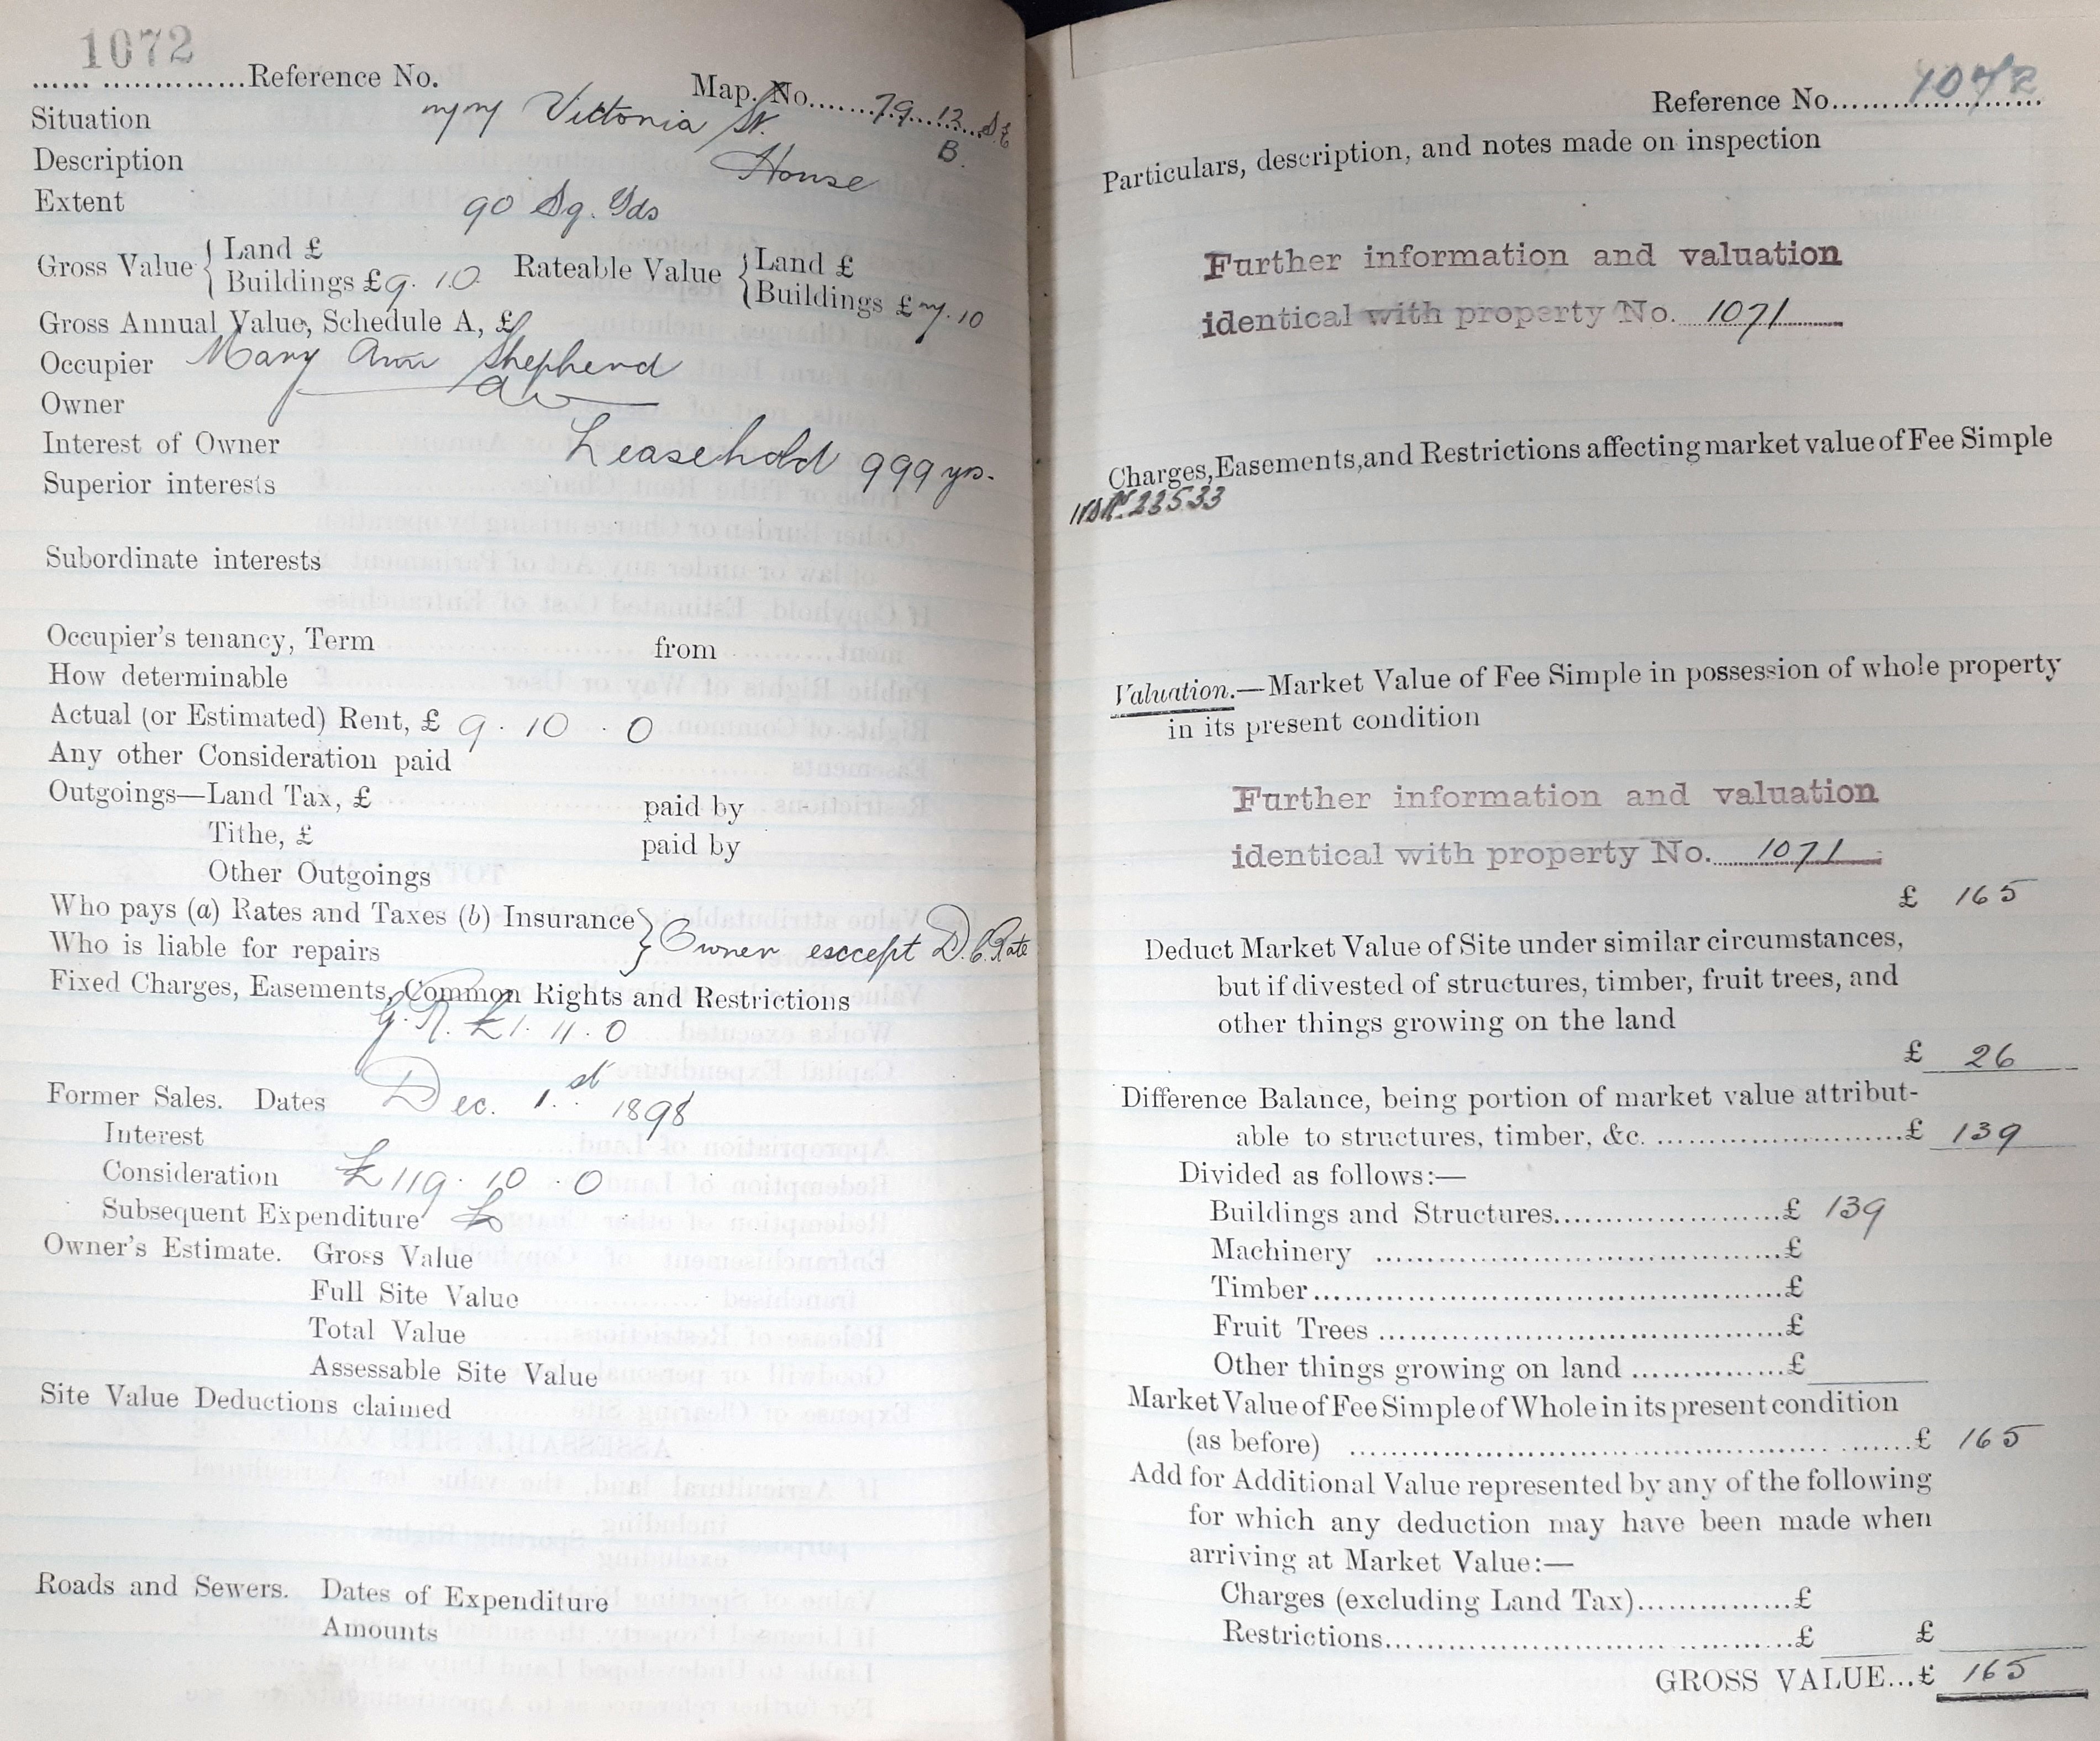 1072
Reference No.
Map. No. 79.12 S.E
B.
Situation 77 Victoria St.
Description House
Extent 90 Sq. Yds
Gross Value { Land £
Buildings £ 9. 10 Rateable Value { Land £
Buildings £ 7. 10
Gross Annual Value, Schedule A, £
Occupier Mary Ann Shepherd
Owner
Interest of Owner Leasehold 999 yrs.
Superior interests
Subordinate interests
Occupier's tenancy, Term from
How determinable
Actual (or Estimated) Rent, £ 9 . 10 . 0
Any other Consideration paid
Outgoings—Land Tax, £ paid by
Tithe, £ paid by
Other Outgoings
Who pays (a) Rates and Taxes (b) Insurance
Who is liable for repairs } Owner except D.C. Rate
Fixed Charges, Easements, Common Rights and Restrictions
G.R. £1. 11. 0
Former Sales. Dates Dec. 1st 1898
Interest
Consideration £119 . 10 . 0
Subsequent Expenditure £
Owner's Estimate. Gross Value
Full Site Value
Total Value
Assessable Site Value
Site Value Deductions claimed
Roads and Sewers. Dates of Expenditure
Amounts
Reference No. 1072
Particulars, description, and notes made on inspection
Further information and valuation
identical with property No. 1071
Charges, Easements, and Restrictions affecting market value of Fee Simple
23533
Valuation.—Market Value of Fee Simple in possession of whole property
in its present condition
Further information and valuation
identical with property No. 1071
£ 165
Deduct Market Value of Site under similar circumstances,
but if divested of structures, timber, fruit trees, and
other things growing on the land
£ 26
Difference Balance, being portion of market value attribut-
able to structures, timber, &c. £ 139
Divided as follows:—
Buildings and Structures £ 139
Machinery £
Timber £
Fruit Trees £
Other things growing on land £
Market Value of Fee Simple of Whole in its present condition
(as before) £ 165
Add for Additional Value represented by any of the following
for which any deduction may have been made when
arriving at Market Value:—
Charges (excluding Land Tax) £
Restrictions £ £
GROSS VALUE...£ 165